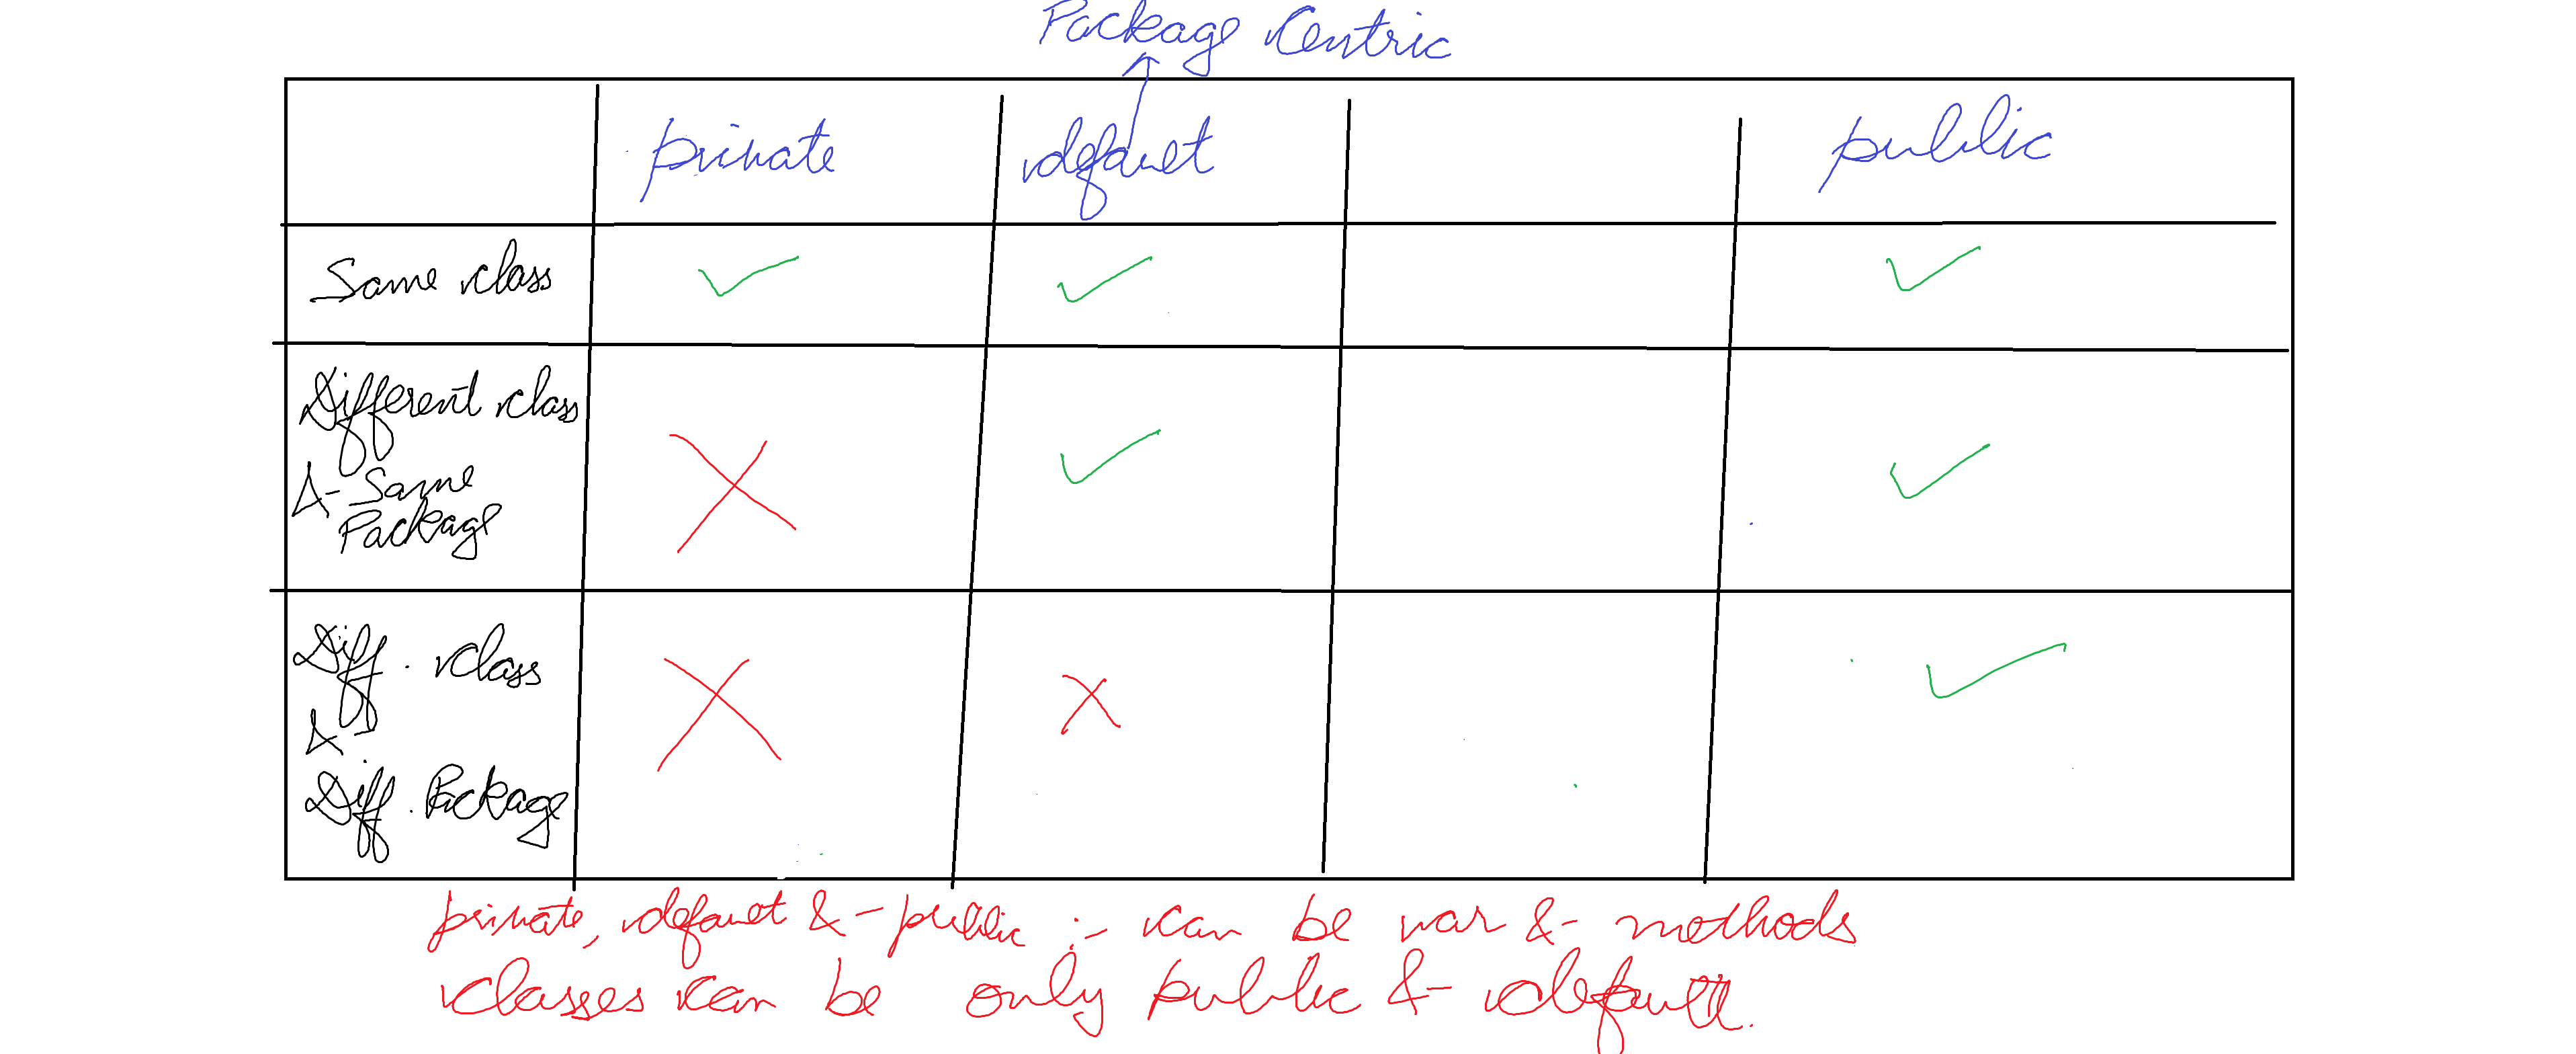 Package Centric
private default public
Same class ✓ ✓ ✓
Different class
&- Same
Package
✗ ✓ ✓
Diff. class
&-
Diff. Package
✗ ✗ ✓
private, default &- public :- can be var &- methods
classes can be only public &- default.